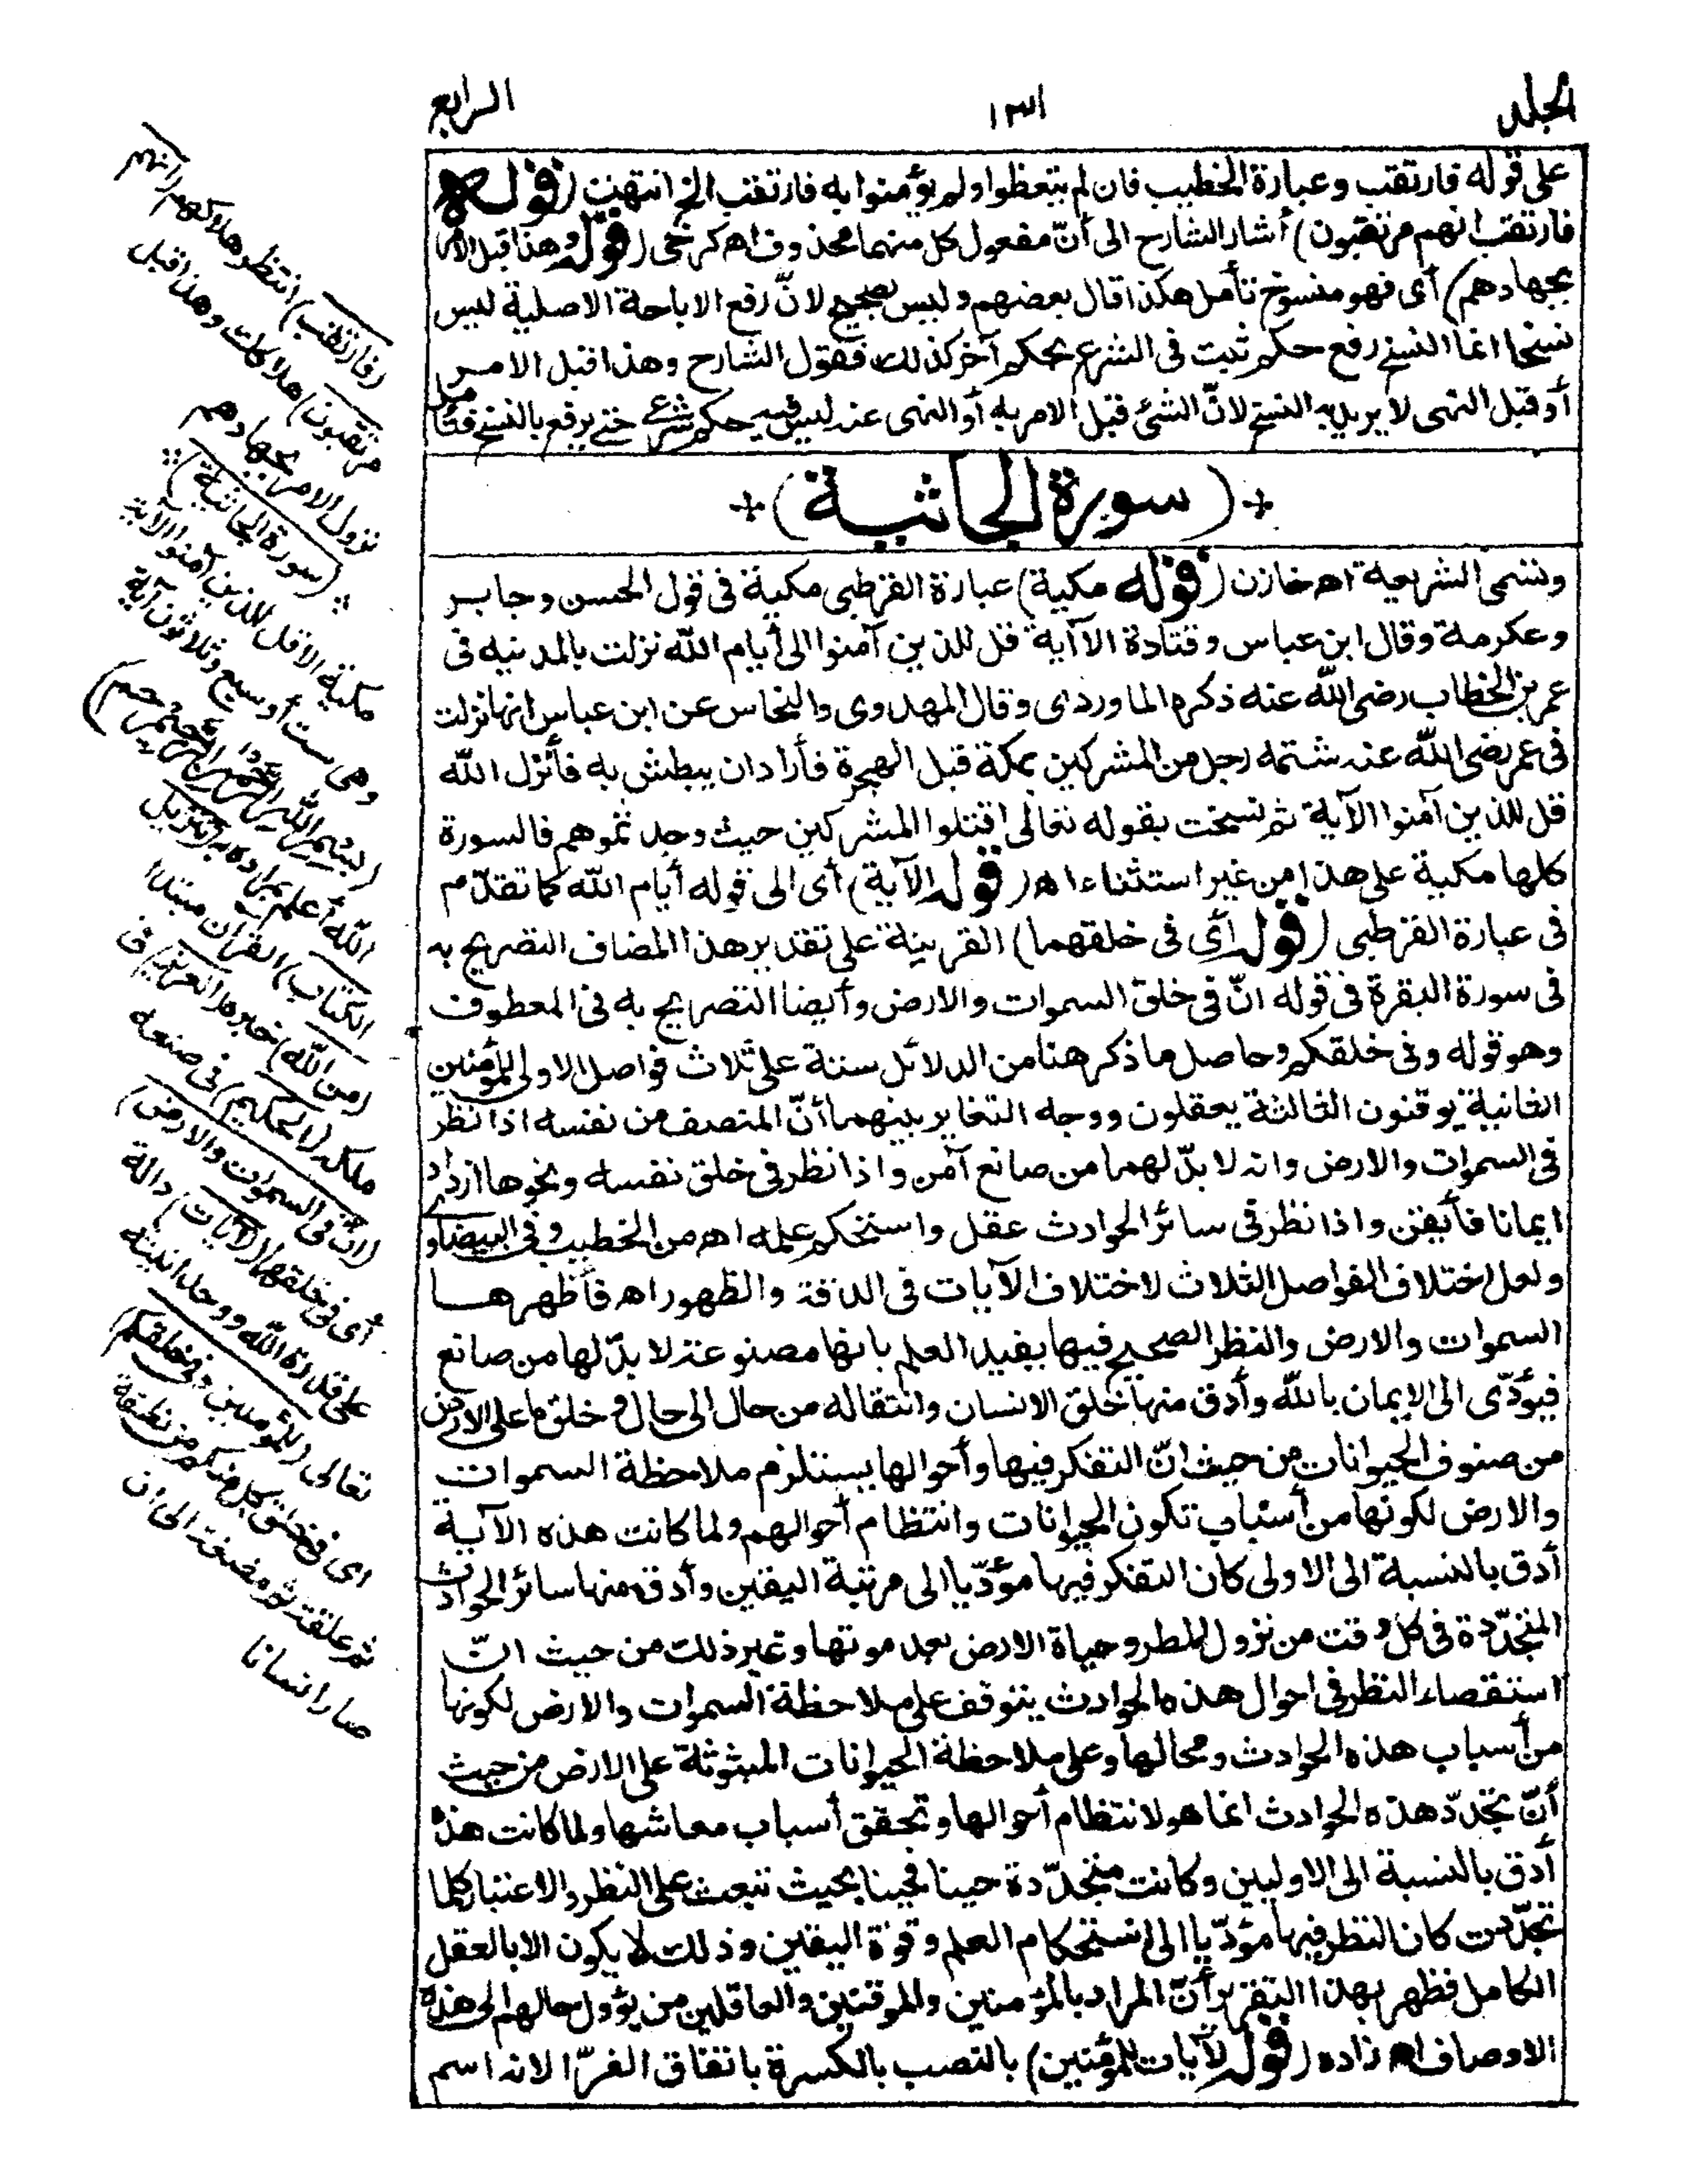 الجلد
١٣١
الرابع
على قوله فارتقب وعبارة الخطيب فان لم يتعظوا ولم يؤمنوا به فارتقب الخ انتهت (قوله
فارتقب انهم مرتقبون) أشار الشارح الى أنّ مفعول كل منهما محذوف اه كرخى (قوله وهذا قبل الامر
بجهادهم) أى فهو منسوخ تأمل هكذا قال بعضهم وليس بصحيح لانّ رفع الاباحة الاصلية ليس
نسخا انما النسخ رفع حكم ثبت فى الشرع بحكم آخر كذلك فقول الشارح وهذا قبل الامر
أو قبل النهى لا يريد به النسخ لانّ الشئ قبل الامر به أو النهى عنه ليس فيه حكم شرعى حتى يرفع بالنسخ فتأمل
(سورة الجاثية)
وتسمى الشريعة اه خازن (قوله مكية) عبارة القرطبى مكية فى قول الحسن وجابر
وعكرمة وقال ابن عباس وقتادة الا آية قل للذين آمنوا الى أيام الله نزلت بالمدينة فى
عمر بن الخطاب رضى الله عنه ذكره الماوردى وقال المهدوى والنحاس عن ابن عباس انها نزلت
فى عمر رضى الله عنه شتمه رجل من المشركين بمكة قبل الهجرة فأراد ان يبطش به فأنزل الله
قل للذين آمنوا الآية ثم نسخت بقوله تعالى اقتلوا المشركين حيث وجدتموهم فالسورة
كلها مكية على هذا من غير استثناء اه (قوله الآية) أى الى قوله أيام الله كما تقدّم
فى عبارة القرطبى (قوله أى فى خلقهما) القرينة على تقدير هذا المضاف التصريح به
فى سورة البقرة فى قوله انّ فى خلق السموات والارض وأيضا التصريح به فى المعطوف
وهو قوله وفى خلقكم وحاصل ما ذكر هنا من الدلائل ستة على ثلاث فواصل الاولى للمؤمنين
الثانية يوقنون الثالثة يعقلون ووجه التغاير بينهما أنّ المنصف من نفسه اذا نظر
فى السموات والارض وانه لا بدّ لهما من صانع آمن واذا نظر فى خلق نفسه ونحوها ازداد
ايمانا فأيقن واذا نظر فى سائر الحوادث عقل واستحكم علمه اه من الخطيب وفى البيضاوى
ولعل اختلاف الفواصل الثلاث لاختلاف الآيات فى الدقة والظهور اه فأظهرها
السموات والارض والنظر الصحيح فيها يفيد العلم بانها مصنوعة لا بدّ لها من صانع
فيؤدّى الى الايمان بالله وأدق منها خلق الانسان وانتقاله من حال الى حال وخلق ما على الارض
من صنوف الحيوانات من حيث انّ التفكر فيها وأحوالها يستلزم ملاحظة السموات
والارض لكونها من أسباب تكون الحيوانات وانتظام أحوالهم ولما كانت هذه الآية
أدق بالنسبة الى الاولى كان التفكر فيها مؤدّيا الى مرتبة اليقين وأدق منها سائر الحوادث
المتجدّدة فى كل وقت من نزول المطر وحياة الارض بعد موتها وغير ذلك من حيث انّ
استقصاء النظر فى احوال هذه الحوادث يتوقف على ملاحظة السموات والارض لكونها
من أسباب هذه الحوادث ومحالها وعلى ملاحظة الحيوانات المبثوثة على الارض من حيث
أنّ تجدّد هذه الحوادث انما هو لانتظام أحوالها وتحقق أسباب معاشها ولما كانت هذه
أدق بالنسبة الى الاوليين وكانت متجدّدة حينا فحينا بحيث تبعث على النظر والاعتبار كلما
تجدّدت كان النظر فيها مؤدّيا الى استحكام العلم وقوة اليقين وذلك لا يكون الا بالعقل
الكامل فظهر بهذا التقرير أنّ المراد بالمؤمنين والموقنين والعاقلين من يؤول حالهم الى هذه
الاوصاف اه زاده (قوله لآيات للمؤمنين) بالنصب بالكسرة باتفاق القرّا لانه اسم
(فارتقب) انتظر هلاكهم (انهم
مرتقبون) هلاكك وهذا قبل
نزول الامر بجهادهم
(سورة الجاثية)
مكية الا قل للذين آمنوا الآية
وهى ست أو سبع وثلاثون آية
(بسم الله الرحمن الرحيم حم)
الله أعلم بمراده به (تنزيل
الكتاب) القرآن مبتدا
(من الله) خبره (العزيز) فى
ملكه (الحكيم) فى صنعه
(انّ فى السموات والارض)
أى فى خلقهما (لآيات) دالة
على قدرة الله ووحدانيته
تعالى (للمؤمنين وفى خلقكم)
اى فى خلق كل منكم من نطفة
ثم علقة ثم مضغة الى ان
صار انسانا